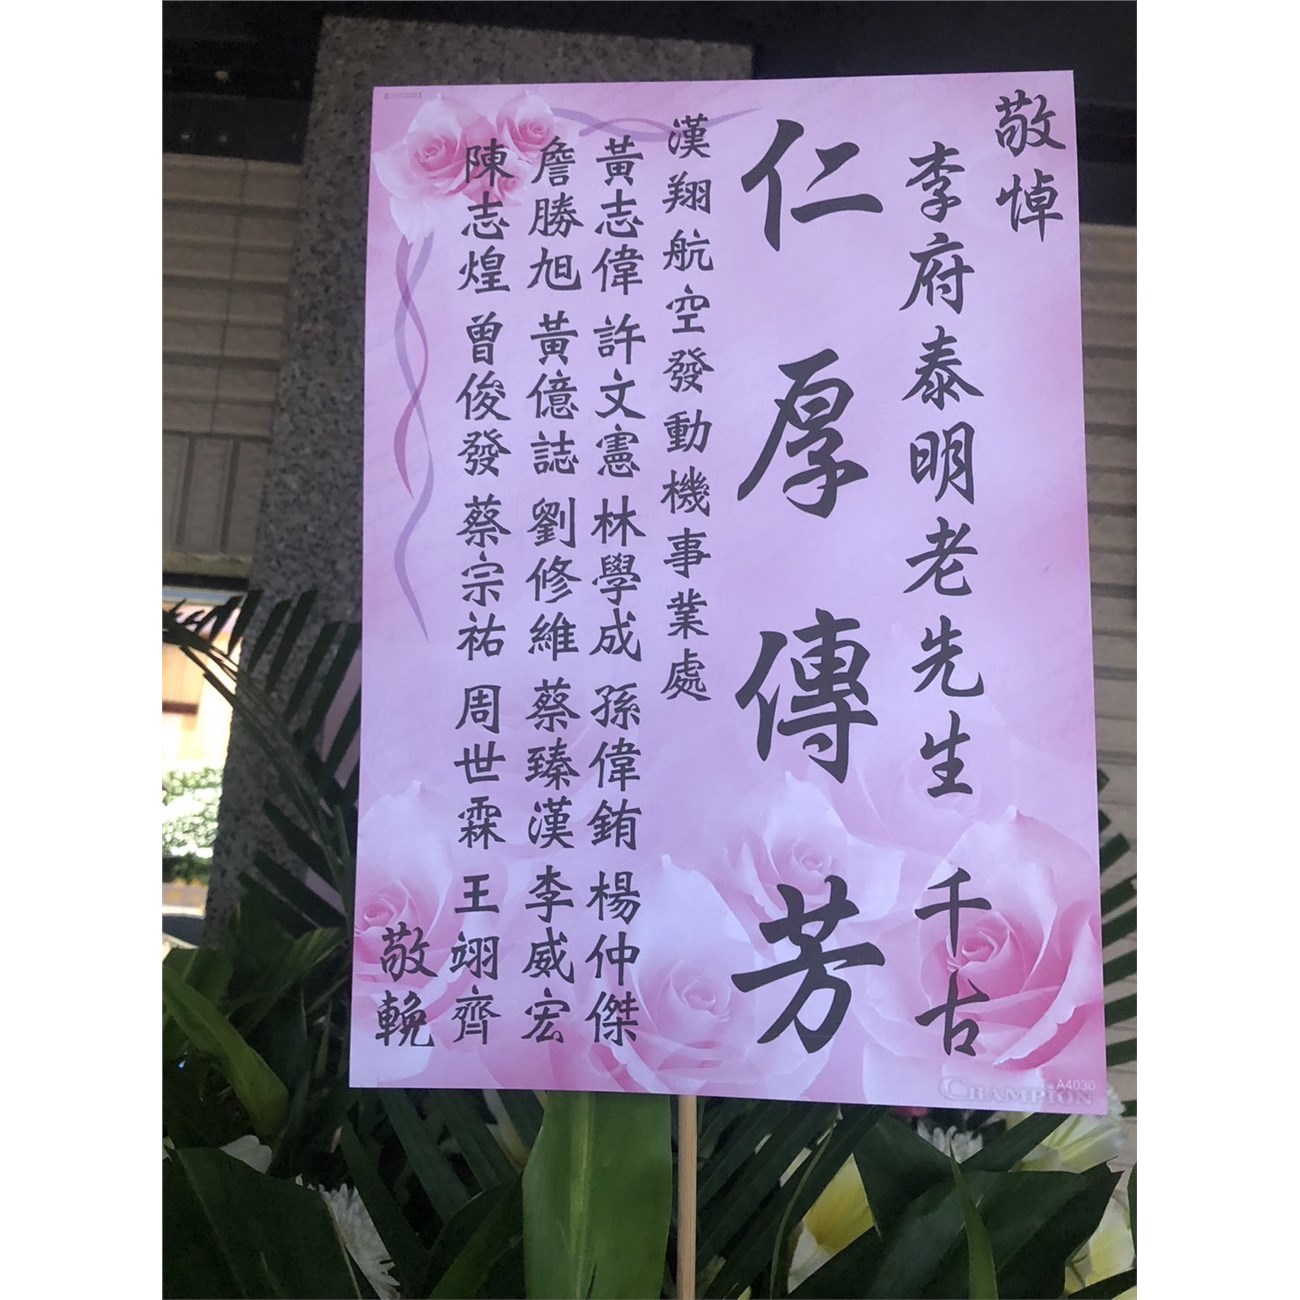 敬悼
李府泰明老先生 千古
仁厚傳芳
漢翔航空發動機事業處
黃志偉 許文憲 林學成 孫偉銪 楊仲傑
詹勝旭 黃億誌 劉修維 蔡臻漢 李威宏
陳志煌 曾俊發 蔡宗祐 周世霖 王翊齊
敬輓
A4030
CHAMPION